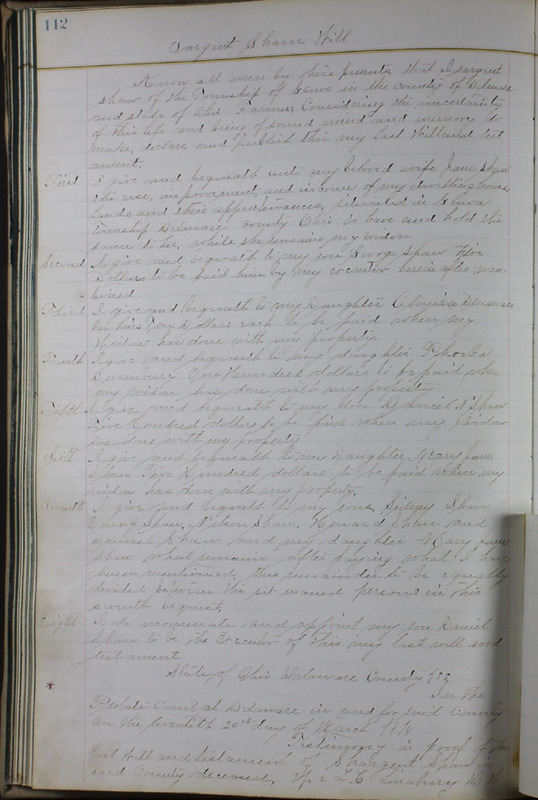 112
Sargent Shaw Will
Know all men by these presents that I Sargent
Shaw of the Township of Genoa in the County of Delaware
and state of Ohio Farmer Considering the uncertainty
of this life and being of sound mind and memory do
make, declare and publish this my last Will and test
ament,
First I give and bequeath unto my beloved wife Jane Shaw
the use, improvement, and income of my dwelling house
lands and their appurtenances, situated in Genoa
township Delaware County Ohio to have and hold the
same to her, while she remains my widow
Second I give and bequeath to my son George Shaw
Dollars to be paid him by my executor herein after men
tioned
Third I give and bequeath to my Daughter
her heirs Dollars each to be paid when my
Widow has done with my property
Fourth I give and bequeath to my daughter
hundred dollars to be paid when
my widow has done with my property
Fifth I give and bequeath to my son Shaw
Hundred dollars to be paid when my Widow
has done with my property
Sixth I give and bequeath to my Daughter Mary Jane
Shaw Hundred dollars to be paid when my
widow has done with my property,
Seventh I give and bequeath to my sons, Shaw
Shaw, Shaw, Howard Shaw and
Shaw and my daughter Mary Jane
Shaw what remains after paying what I have
been mentioned, this remainder to be equally
divided between the six named persons in this
seventh bequest,
Eight I do nominate and appoint my son Daniel
Shaw to be the Executor of this my last will and
testament
State of Ohio Delaware County SS
In the
Probate Court at Delaware in and for said County
On the 20th day of March
Testimony in proof of the
last Will and testament of Sargent Shaw
said County deceased,